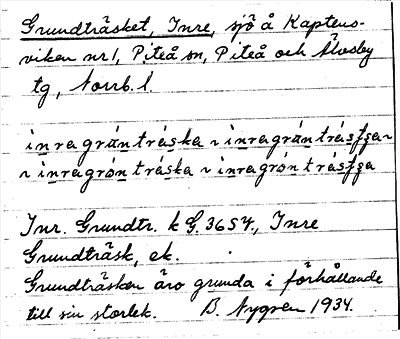 Grundträsket, Inre, sjö å Kaptens-
viken nr 1, Piteå sn, Piteå och Älvsby
tg, Norrb. l.
inragränträska ~ inragränträsʃʒa ~
~ inragrөnträska ~ inragrөnträsʃʒa
Inr. Grundtr. k G. 3654, Inre
Grundträsk, ek.
Grundträsken äro grunda i förhållande
till sin storlek. B. Nygren 1934.